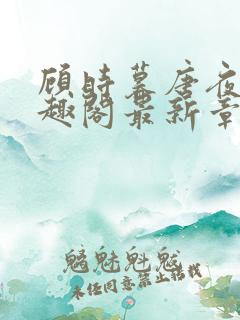 顾时暮唐夜
趣阁最新章
魑魅魁魃
未经同意禁止转载